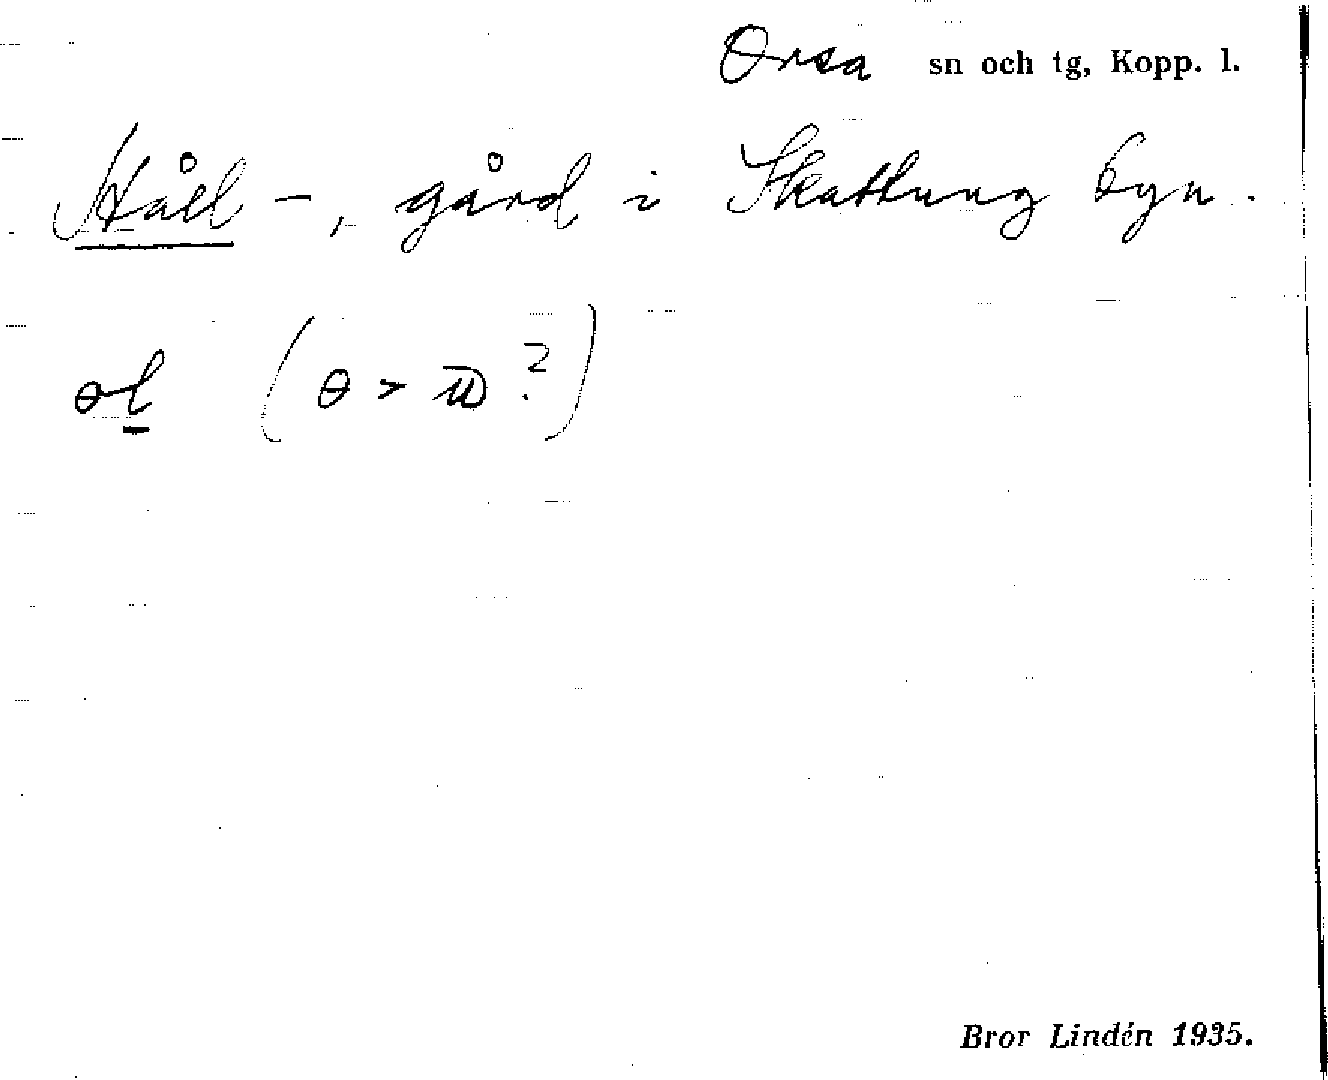 Orsa sn och tg, Kopp. l.
Håll -, gård i Skattungbyn.
ɵl (ɵ > ?)
Bror Lindén 1935.